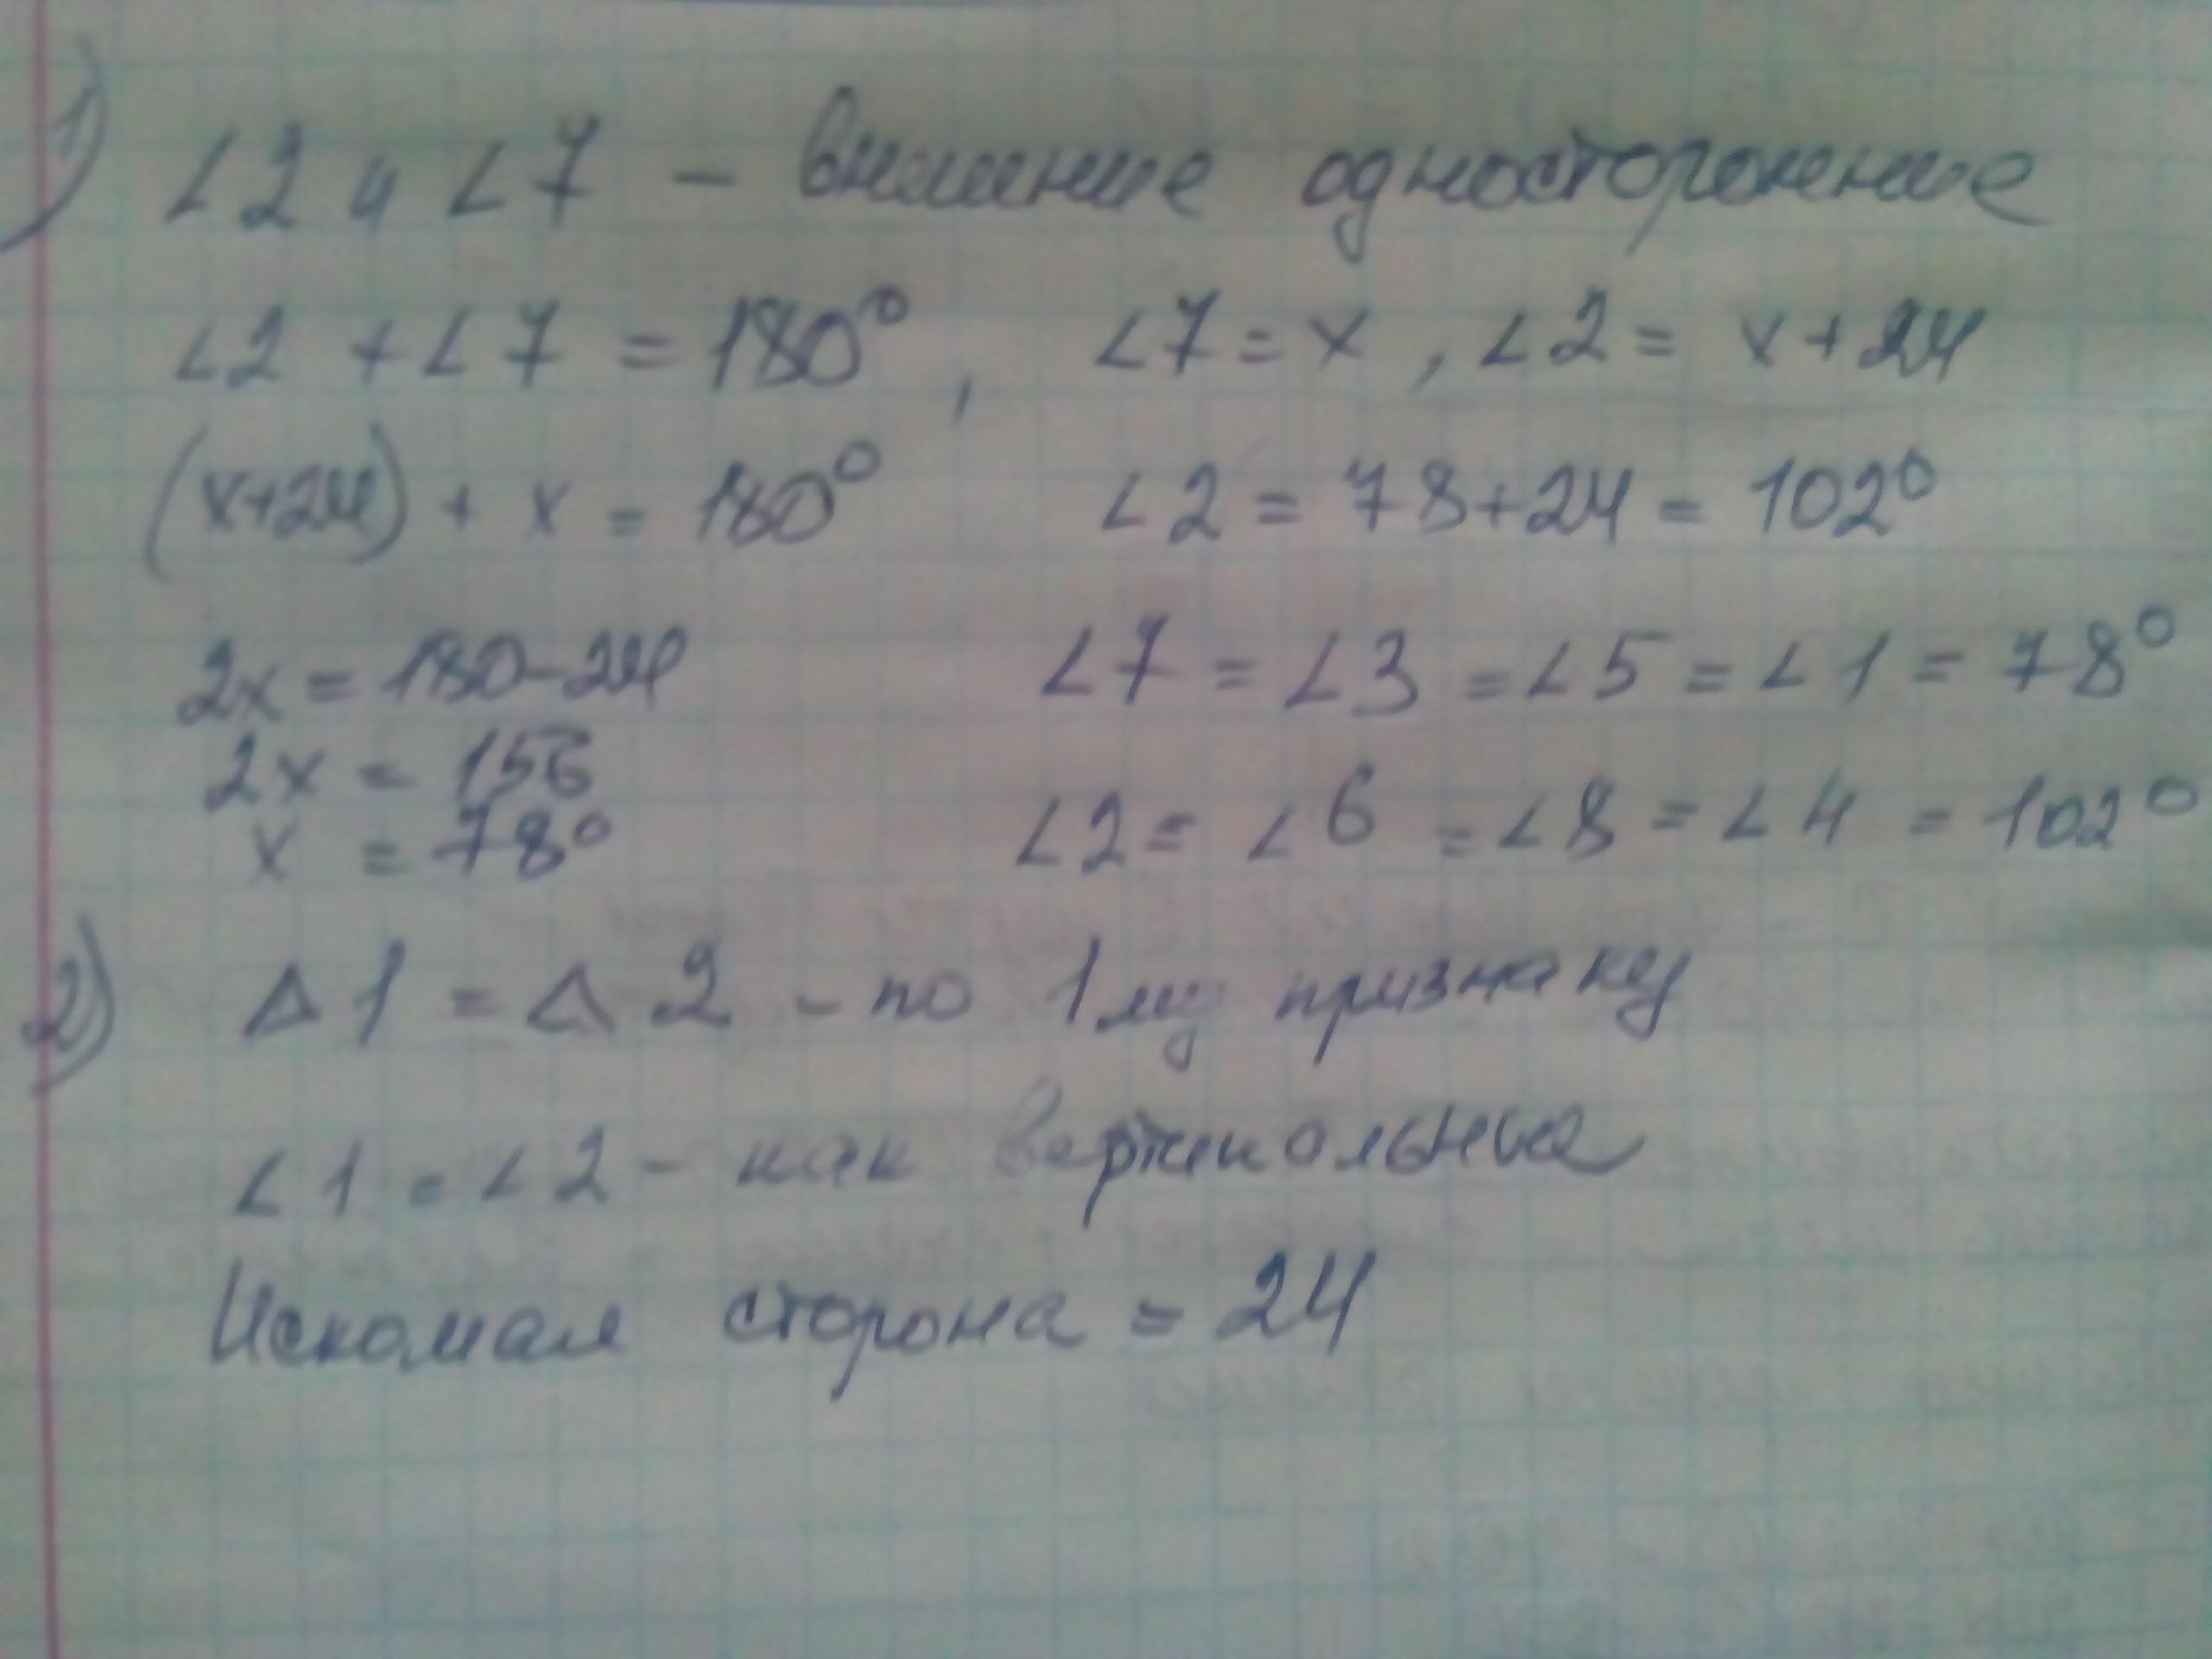 1) ∠2 и ∠7 - внешние односторонние
∠2 + ∠7 = 180°, ∠7 = x, ∠2 = x + 24
(x+24) + x = 180° ∠2 = 78+24 = 102°
2x = 180-24 ∠7 = ∠3 = ∠5 = ∠1 = 78°
2x = 156
x = 78° ∠2 = ∠6 = ∠8 = ∠4 = 102°
2) Δ1 = Δ2 - по 1му признаку
∠1 = ∠2 - как вертикальные
Искомая сторона = 24